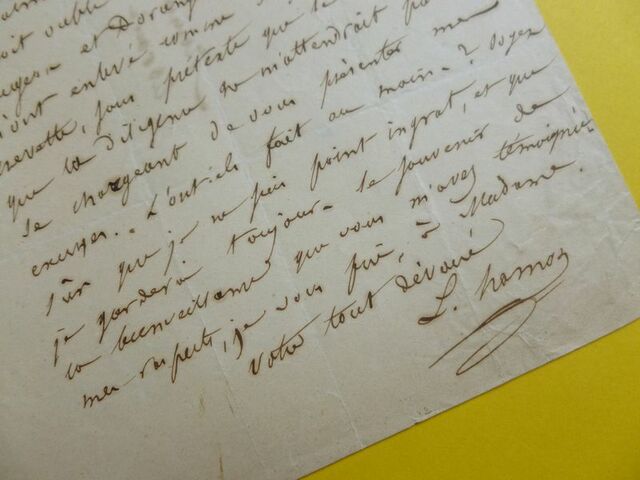 oit oublié
et Dorange
m'ont enlevé comme
crevette, sous prétexte que le
que la Diligence ne m'attendrait pas
se chargeant de vous présenter mes
excuses.. L'ont-ils fait au moins-? Soyez
sûre que je ne suis point ingrat, et que
je garderai toujours le souvenir de
la bienveillance que vous m'avez témoignée.
mes respects, je vous prie, à Madame.
Votre tout dévoué
L. hamon